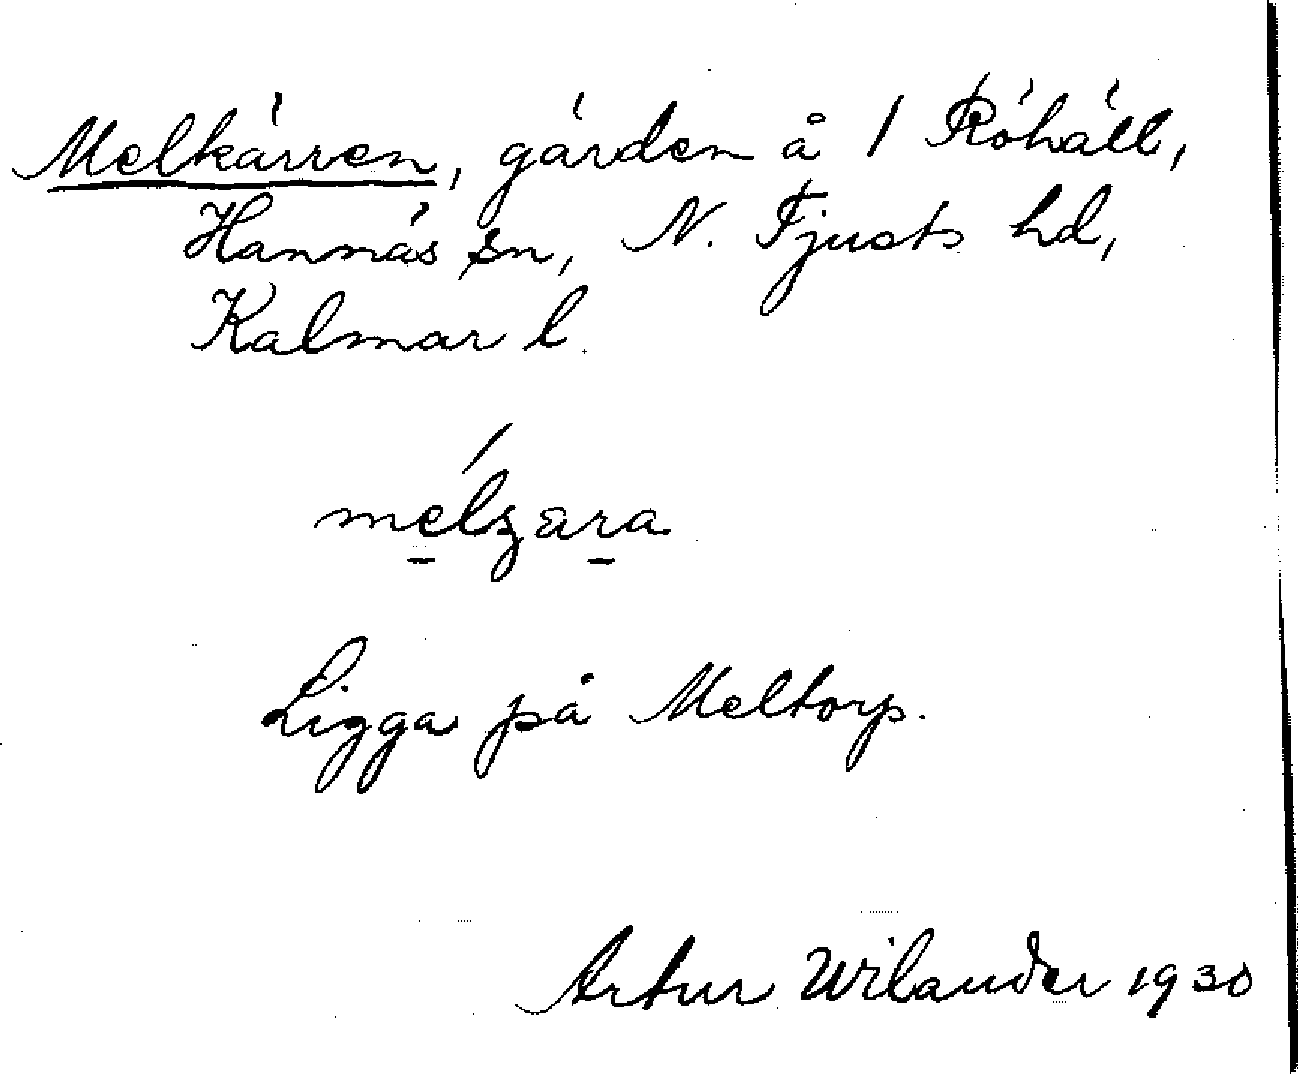 Melkärren, gärden å 1 Röhäll,
Hannäs sn, N. Tjusts hd,
Kalmar l.
melzara
Ligga på Meltorp.
Artur Wilander 1930